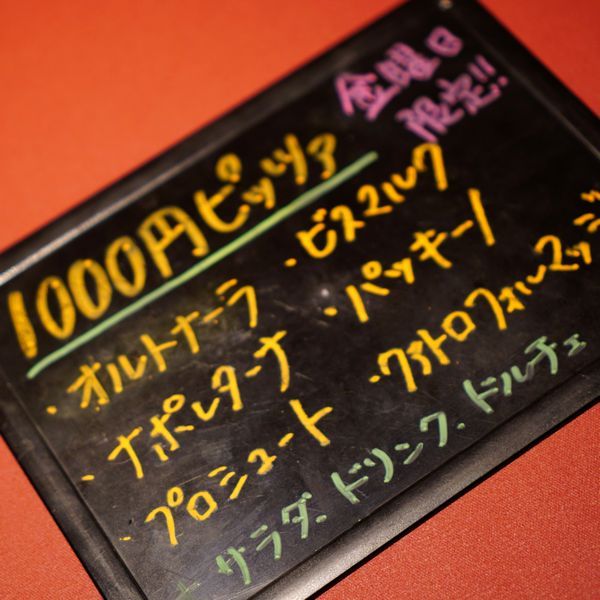 金曜日
限定!!
1000円ピッツァ
・オルトナーラ
・ナポレターナ
・プロシュート
・ビスマルク
・パッキーノ
・クアトロフォルマッジ
+ サラダ、ドリンク、ドルチェ